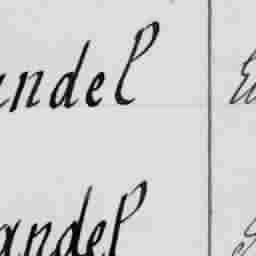 andel
andel